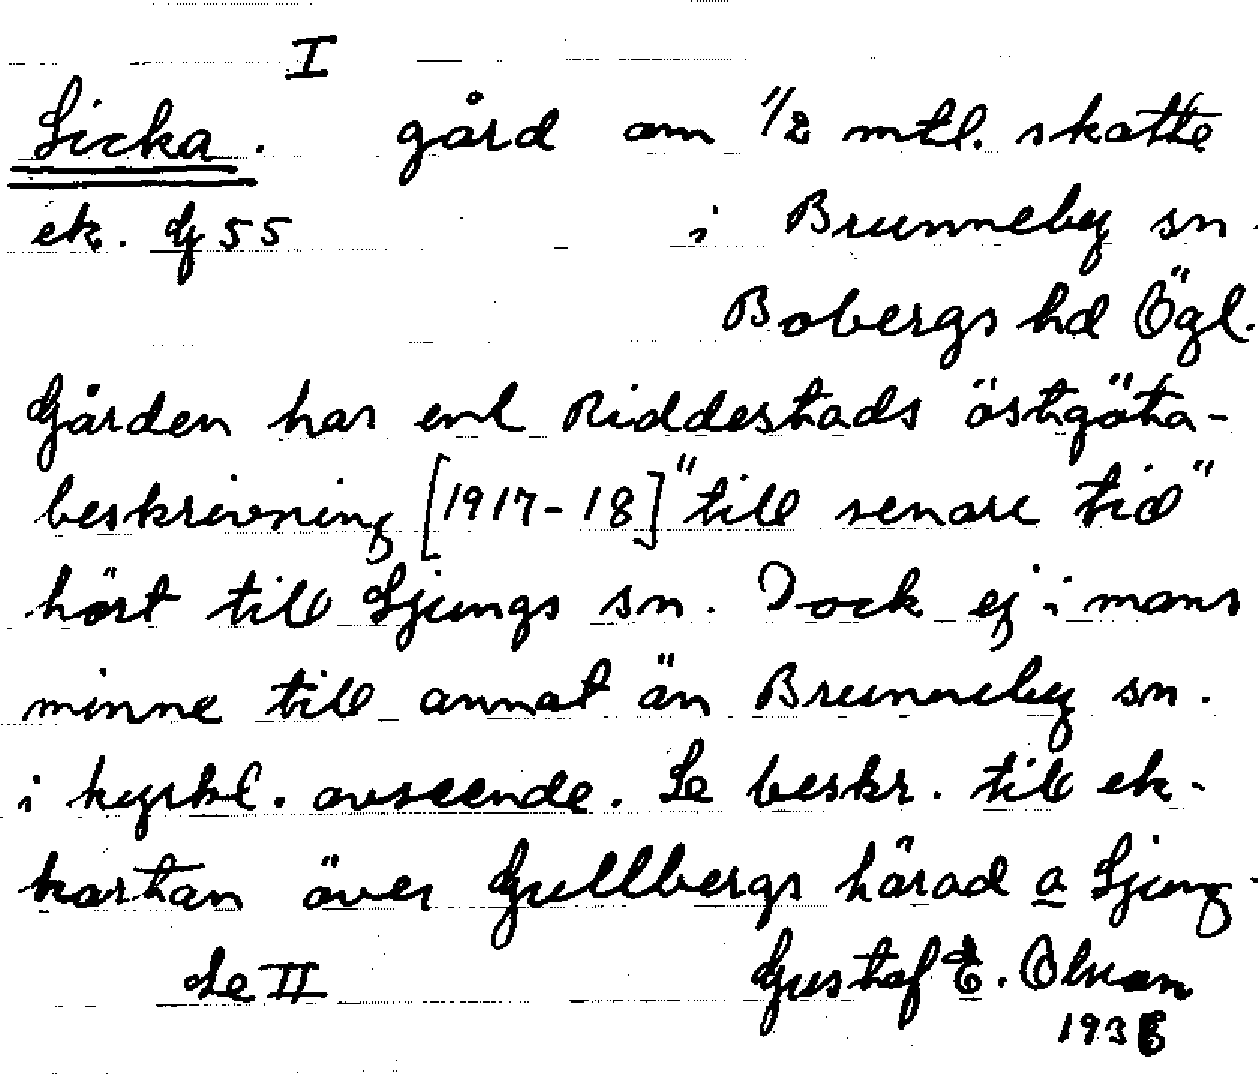 I
Sicka. gård om 1/2 mtl. skatte
ek. G 55 i Brunneby sn.
Bobergs hd Ögl.
Gården har enl Riddestads östgöta-
beskrivning [1917-18] "till senare tid"
hört till Ljungs sn. Dock ej i mans
minne till annat än Brunneby sn.
i kyrkl. avseende. Se beskr. till ek-
kartan över Gullbergs härad a Ljung
Se II Gustaf E. Olsson